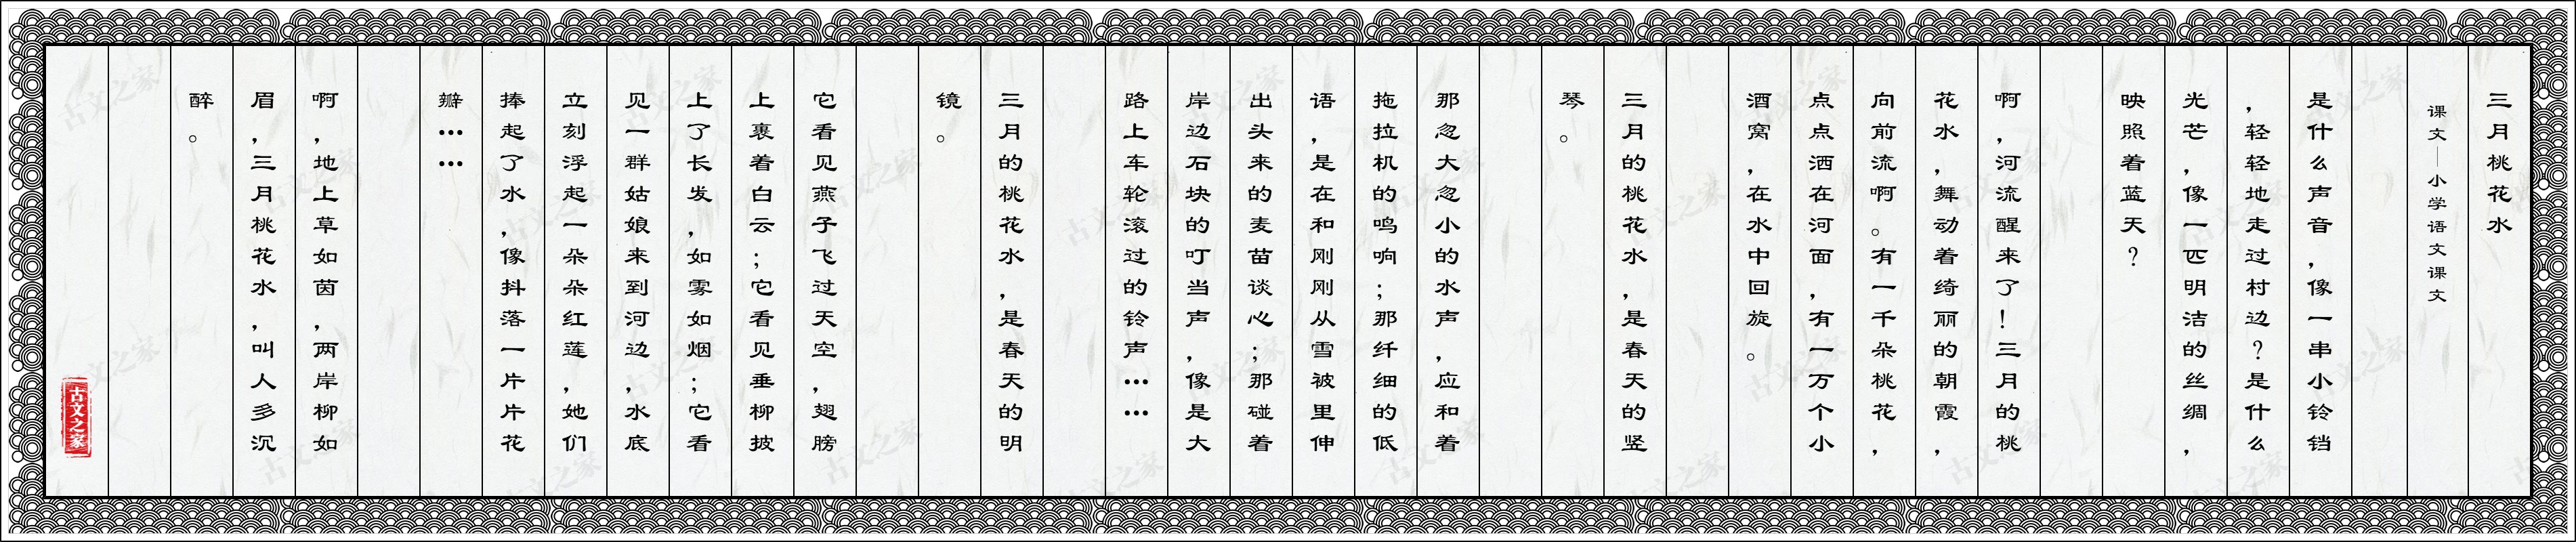 三月桃花水
课文—小学语文课文
是什么声音，像一串小铃铛
，轻轻地走过村边？是什么
光芒，像一匹明洁的丝绸，
映照着蓝天？
啊，河流醒来了！三月的桃
花水，舞动着绮丽的朝霞，
向前流啊。有一千朵桃花，
点点洒在河面，有一万个小
酒窝，在水中回旋。
三月的桃花水，是春天的竖
琴。
那忽大忽小的水声，应和着
拖拉机的鸣响；那纤细的低
语，是在和刚刚从雪被里伸
出头来的麦苗谈心；那碰着
岸边石块的叮当声，像是大
路上车轮滚过的铃声……
三月的桃花水，是春天的明
镜。
它看见燕子飞过天空，翅膀
上裹着白云；它看见垂柳披
上了长发，如雾如烟；它看
见一群姑娘来到河边，水底
立刻浮起一朵朵红莲，她们
捧起了水，像抖落一片片花
瓣……
啊，地上草如茵，两岸柳如
眉，三月桃花水，叫人多沉
醉。
古文之家